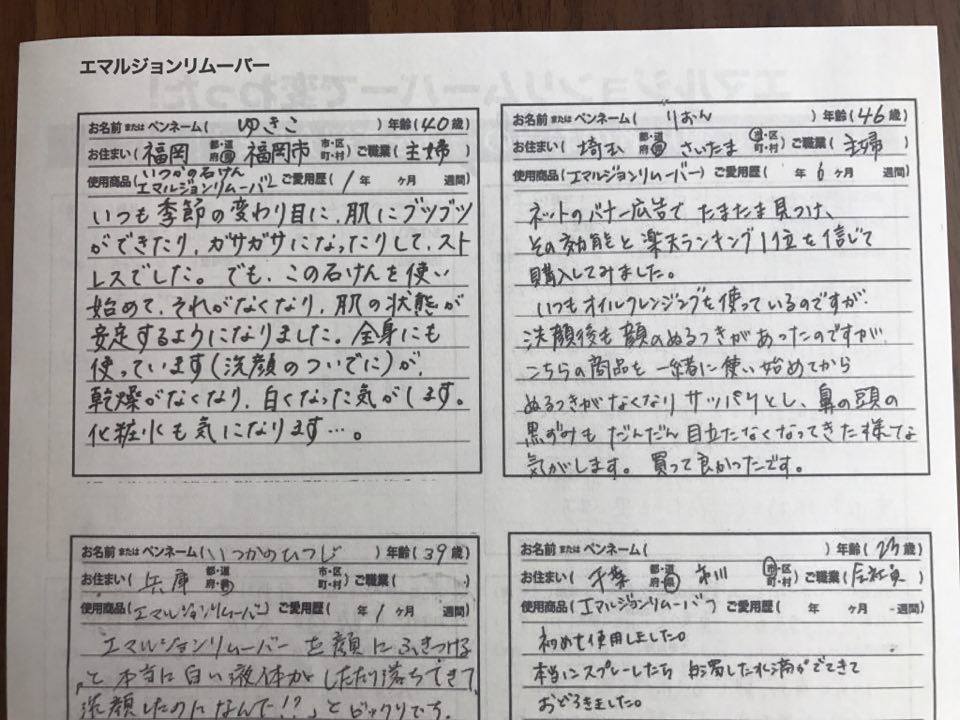 エマルジョンリムーバー
お名前またはペンネーム( ゆきこ )年齢(40歳)
お住まい( 福岡 都・道府・県 福岡市 市・区町・村 )ご職業( 主婦 )
いつかの石けん
使用商品( エマルジョンリムーバー ご愛用歴( 1 年 ヶ月 週間)
いつも季節の変わり目に、肌にブツブツ
ができたり、ガサガサになったりして、スト
レスでした。でも、この石けんを使い
始めて、それがなくなり、肌の状態が
安定するようになりました。全身にも
使っています(洗顔のついでに)が、
乾燥がなくなり、白くなった気がします。
化粧水も気になります…。
お名前またはペンネーム( りおん )年齢(46歳)
お住まい( 埼玉 都・道府・県 さいたま 市・区町・村 )ご職業( 主婦
使用商品(エマルジョンリムーバー) ご愛用歴( 年 6 ヶ月 週間)
ネットのバナー広告で たまたま見つけ、
その効能と楽天ランキング1位を信じて
購入してみました。
いつもオイルクレンジングを使っているのですが、
洗顔後も顔のぬるつきがあったのですが、
こちらの商品を一緒に使い始めてから
ぬるつきがなくなりサッパリとし、鼻の頭の
黒ずみもだんだん目立たなくなってきた様な
気がします。買って良かったです。
お名前またはペンネーム(いつかのひつじ )年齢(39歳)
お住まい( 兵庫 都・道府・県 市・区町・村 )ご職業( )
使用商品(エマルジョンリムーバー) ご愛用歴( 年 1 ヶ月 週間)
エマルションリムーバー を顔に ふきつける
と本当に白い液体が したたり落ちてきて、
洗顔したのになんで!?」とビックリです。
お名前またはペンネーム( )年齢(23歳)
お住まい( 千葉 都・道府・県 市川 市・区町・村 )ご職業(会社員)
使用商品(エマルジョンリムーバー ) ご愛用歴( 年 ヶ月 週間)
初めて使用しました。
本当にスプレーしたら 白濁した水滴がでてきて
おどろきました。